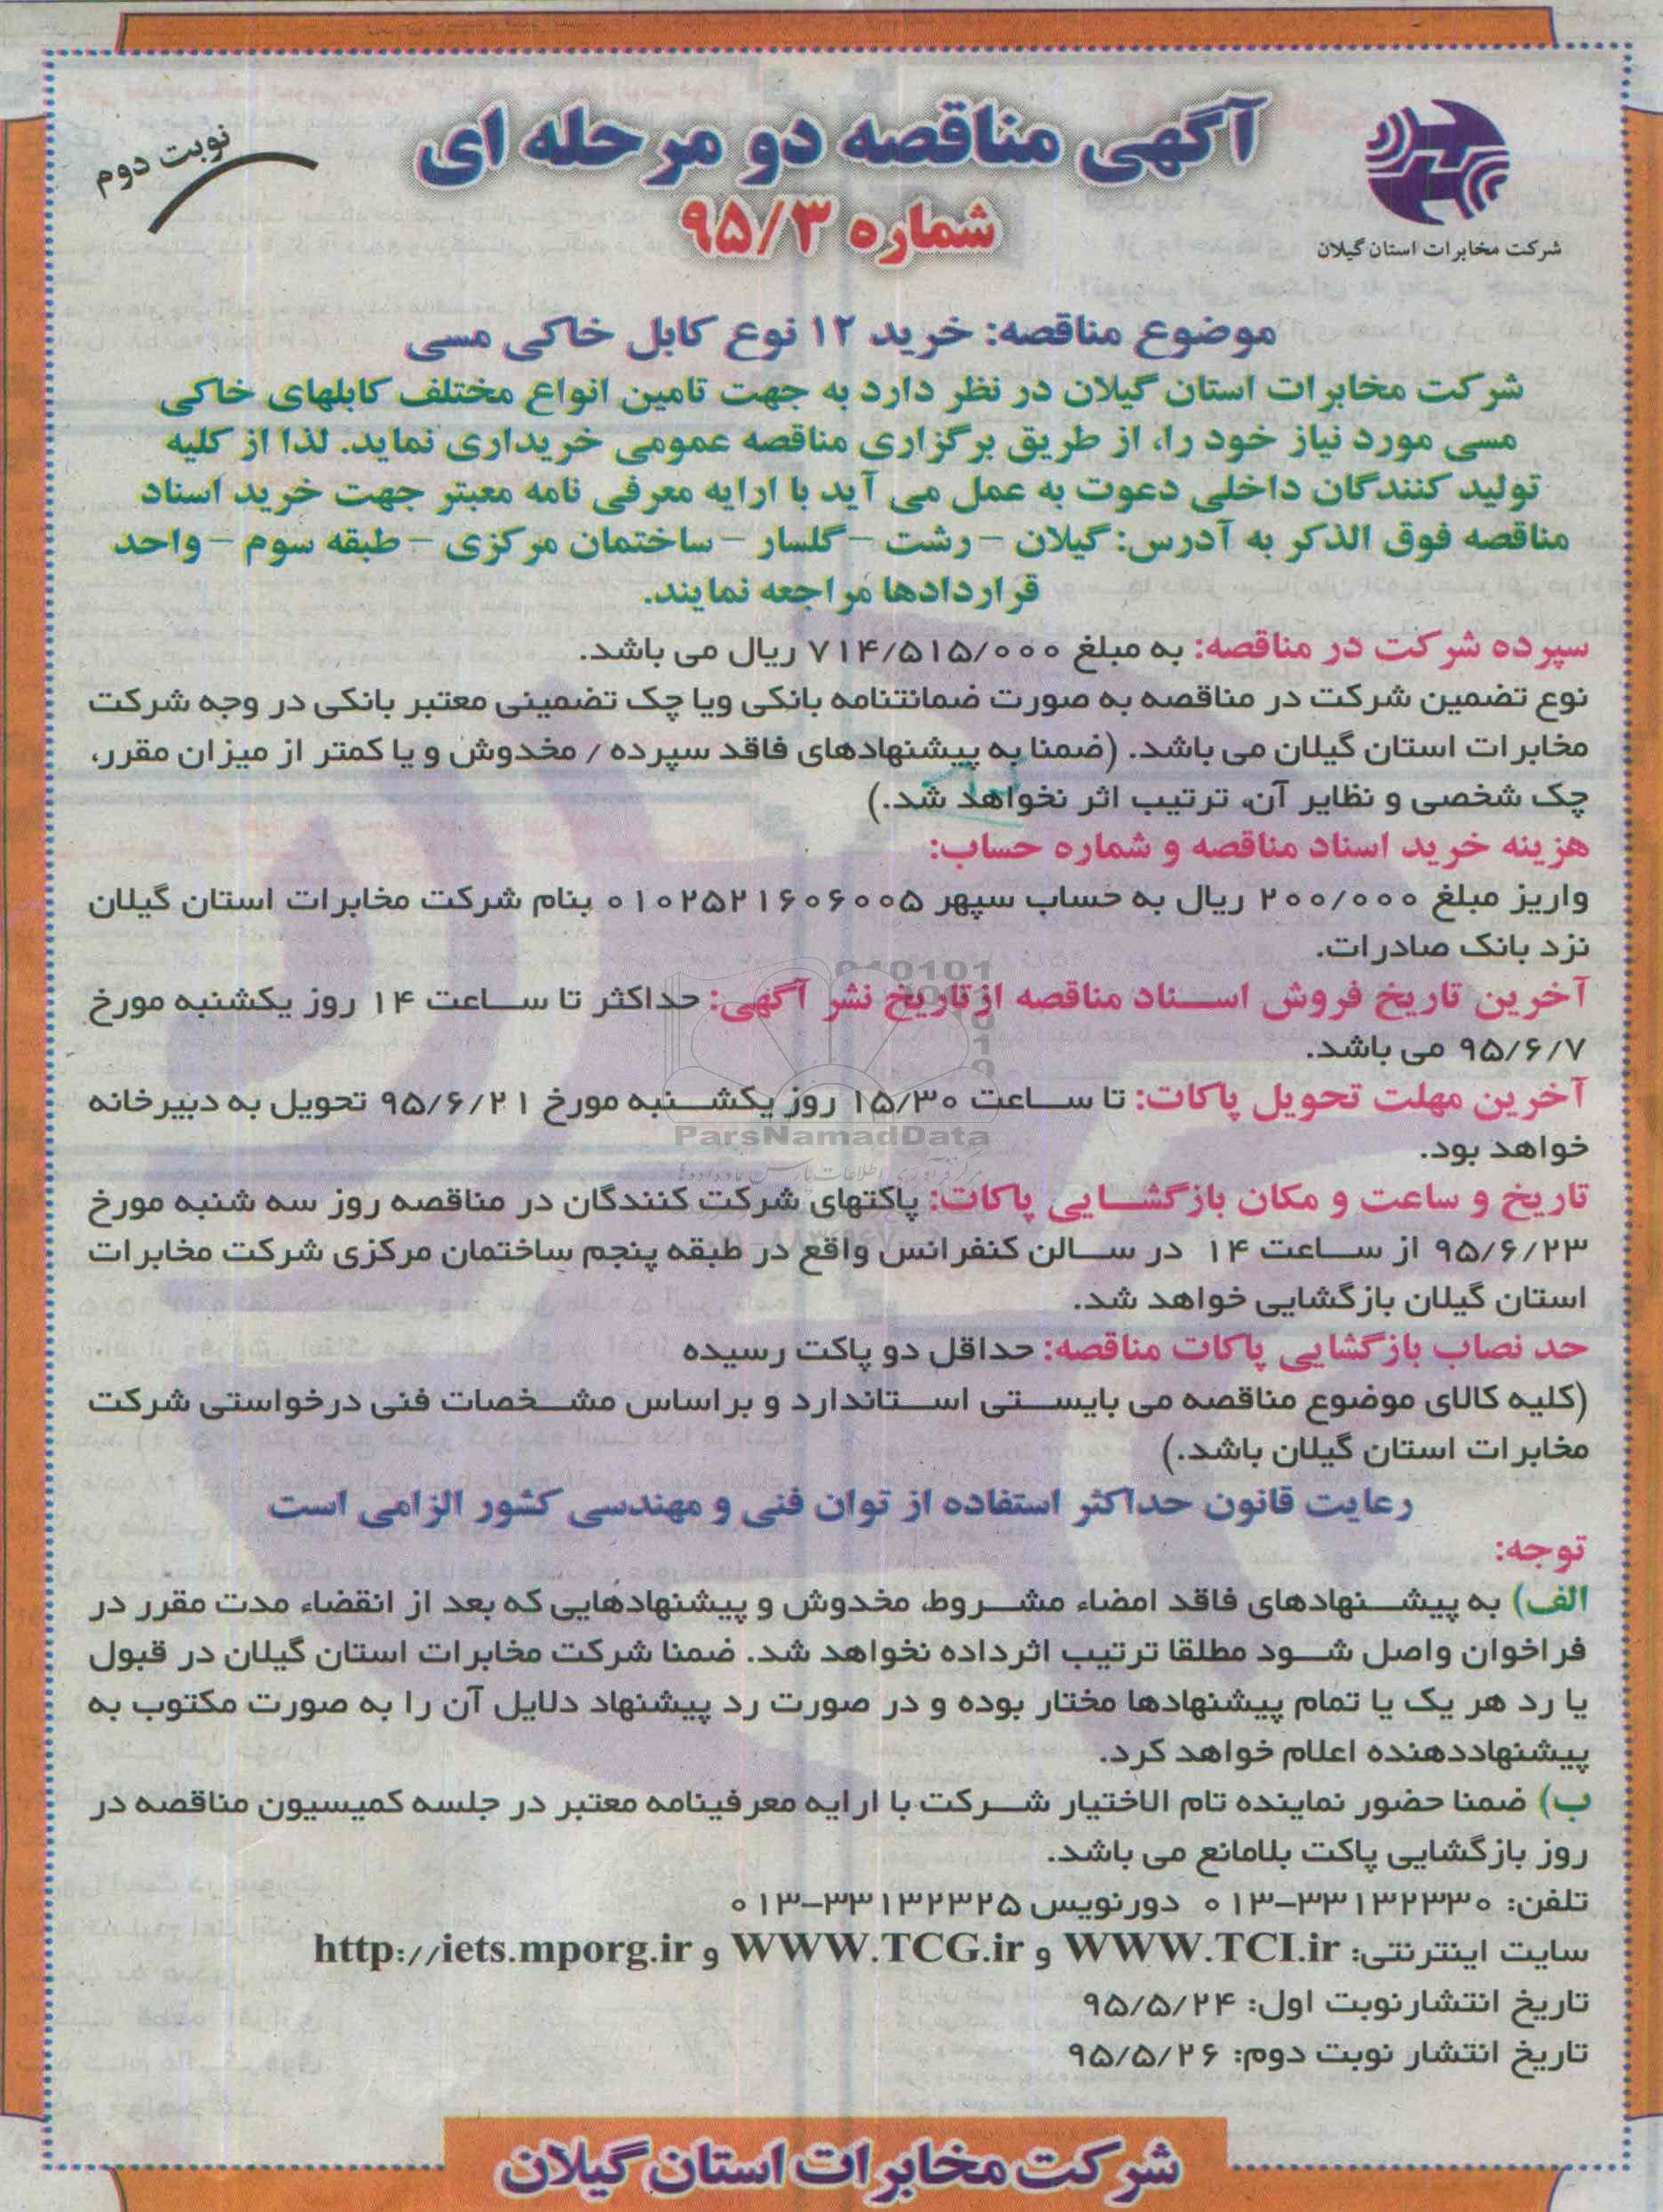 آگهی مناقصه دو مرحله ای
شماره ۹۵/۳
نوبت دوم
شرکت مخابرات استان گیلان
موضوع مناقصه: خرید ۱۲ نوع کابل خاکی مسی
شرکت مخابرات استان گیلان در نظر دارد به جهت تامین انواع مختلف کابلهای خاکی
مسی مورد نیاز خود را، از طریق برگزاری مناقصه عمومی خریداری نماید. لذا از کلیه
تولید کنندگان داخلی دعوت به عمل می آید با ارایه معرفی نامه معتبر جهت خرید اسناد
مناقصه فوق الذکر به آدرس: گیلان - رشت - گلسار - ساختمان مرکزی - طبقه سوم - واحد
قراردادها مراجعه نمایند.
سپرده شرکت در مناقصه: به مبلغ ۷۱۴/۵۱۵/۰۰۰ ریال می باشد.
نوع تضمین شرکت در مناقصه به صورت ضمانتنامه بانکی ویا چک تضمینی معتبر بانکی در وجه شرکت
مخابرات استان گیلان می باشد. (ضمنا به پیشنهادهای فاقد سپرده / مخدوش و یا کمتر از میزان مقرر،
چک شخصی و نظایر آن، ترتیب اثر نخواهد شد.)
هزینه خرید اسناد مناقصه و شماره حساب:
واریز مبلغ ۲۰۰/۰۰۰ ریال به حساب سپهر ۰۱۰۲۵۲۱۶۰۶۰۰۵ بنام شرکت مخابرات استان گیلان
نزد بانک صادرات.
آخرین تاریخ فروش اسناد مناقصه از تاریخ نشر آگهی: حداکثر تا ساعت ۱۴ روز یکشنبه مورخ
۹۵/۶/۷ می باشد.
آخرین مهلت تحویل پاکات: تا ساعت ۱۵/۳۰ روز یکشنبه مورخ ۹۵/۶/۲۱ تحویل به دبیرخانه
خواهد بود.
ParsNamadData
تاریخ و ساعت و مکان بازگشایی پاکات: پاکتهای شرکت کنندگان در مناقصه روز سه شنبه مورخ
۹۵/۶/۲۳ از ساعت ۱۴ در سالن کنفرانس واقع در طبقه پنجم ساختمان مرکزی شرکت مخابرات
استان گیلان بازگشایی خواهد شد.
حد نصاب بازگشایی پاکات مناقصه: حداقل دو پاکت رسیده
(کلیه کالای موضوع مناقصه می بایستی استاندارد و براساس مشخصات فنی درخواستی شرکت
مخابرات استان گیلان باشد.)
رعایت قانون حداکثر استفاده از توان فنی و مهندسی کشور الزامی است
توجه:
الف) به پیشنهادهای فاقد امضاء مشروط، مخدوش و پیشنهادهایی که بعد از انقضاء مدت مقرر در
فراخوان واصل شود مطلقا ترتیب اثرداده نخواهد شد. ضمنا شرکت مخابرات استان گیلان در قبول
یا رد هر یک یا تمام پیشنهادها مختار بوده و در صورت رد پیشنهاد دلایل آن را به صورت مکتوب به
پیشنهاددهنده اعلام خواهد کرد.
ب) ضمنا حضور نماینده تام الاختیار شرکت با ارایه معرفینامه معتبر در جلسه کمیسیون مناقصه در
روز بازگشایی پاکت بلامانع می باشد.
تلفن: ۳۳۱۳۲۳۳۰-۰۱۳ دورنویس ۳۳۱۳۲۳۲۵-۰۱۳
سایت اینترنتی: WWW.TCI.ir و WWW.TCG.ir و http://iets.mporg.ir
تاریخ انتشارنوبت اول: ۹۵/۵/۲۴
تاریخ انتشار نوبت دوم: ۹۵/۵/۲۶
شرکت مخابرات استان گیلان